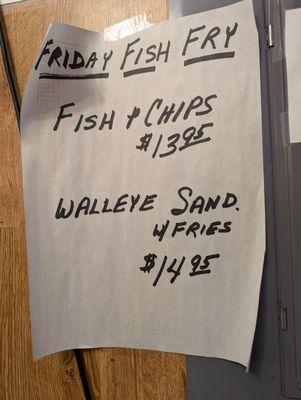 FRIDAY FISH FRY
FISH & CHIPS
$13.95
WALLEYE SAND.
W/ FRIES
$14.95